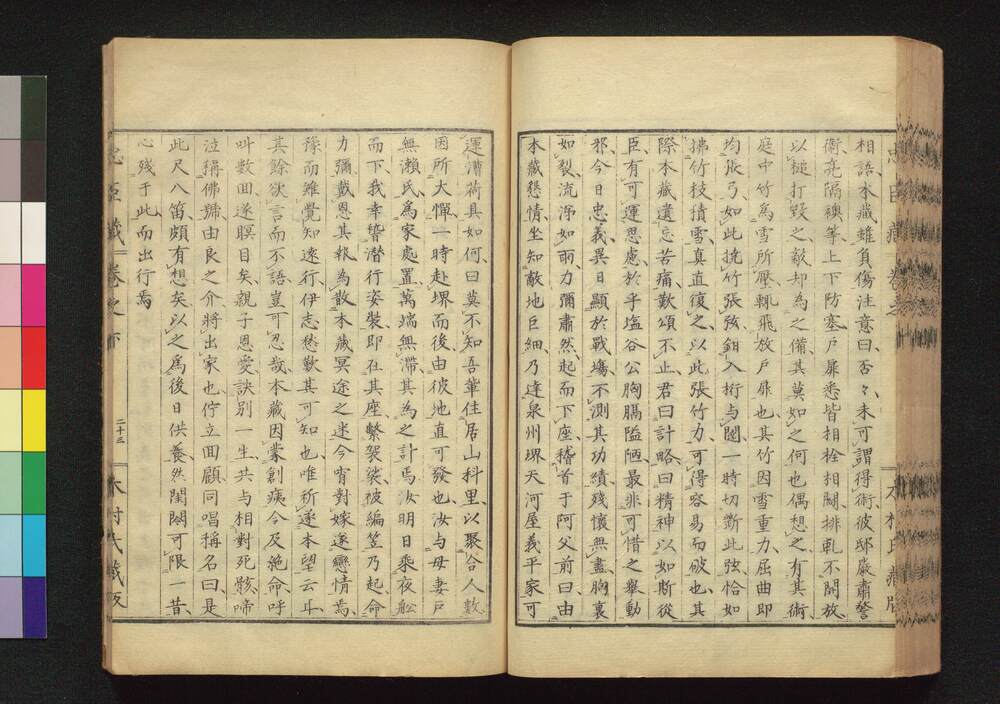 相語本藏雖負傷注意曰否々未可謂得術彼邸嚴肅警
衛亮隔襖等上下防塞戶扉悉皆相栓相關排軋不開放
以槌打毀之敵却為之備其莫如之何也偶想之有其術
庭中竹為雪所壓輒飛放戶扉也其竹因雪重力屈曲即
均張弓如此撓竹張弦鉗入桁与閾一時切斷此弦恰如
拂竹枝積雪真直復之以此張竹力可得容易而破也其
際本藏遺忘苦痛歎頌不止君曰計略曰精神以如斯從
臣有可運思慮於乎塩谷公胸膈隘陋最非可惜之舉動
邪今日忠義異日顯於戰場不測其功績殘懷無盡胸裏
如裂流淂如雨力彌肅然起而下座稽首于阿父前曰由
本藏懇情坐知敵地巨細乃達泉州堺天河屋義平家可
運漕荷具如何曰莫不知吾輩住居山科里以聚合人數
因所大憚一時赴堺而後由彼地直可發也汝与母妻戶
無瀨氏為家處置萬端無滯其為之計焉汝明日乘夜舩
而下我幸暫潜行姿裝即在其座繫袈裟被編笠乃起命
力彌戴恩其報為散本藏冥途之迷今宵對嫁遂戀情焉
豫而雖覺知遠行伊志愁歎其可知也唯祈遂本望云爾
其餘欲言而不語豈可忍哉本藏因蒙創痍今及絶命呼
叫數回遂瞑目矣親子恩愛訣別一生共与相對死骸啼
泣稱佛號由良之介將出家也佇立面顧同唱稱名曰是
此尺八笛頗有想矣以之為後日供養然閨閤可限一昔
心殘于此而出行焉
忠臣藏 卷之下
二十三
木村氏藏版